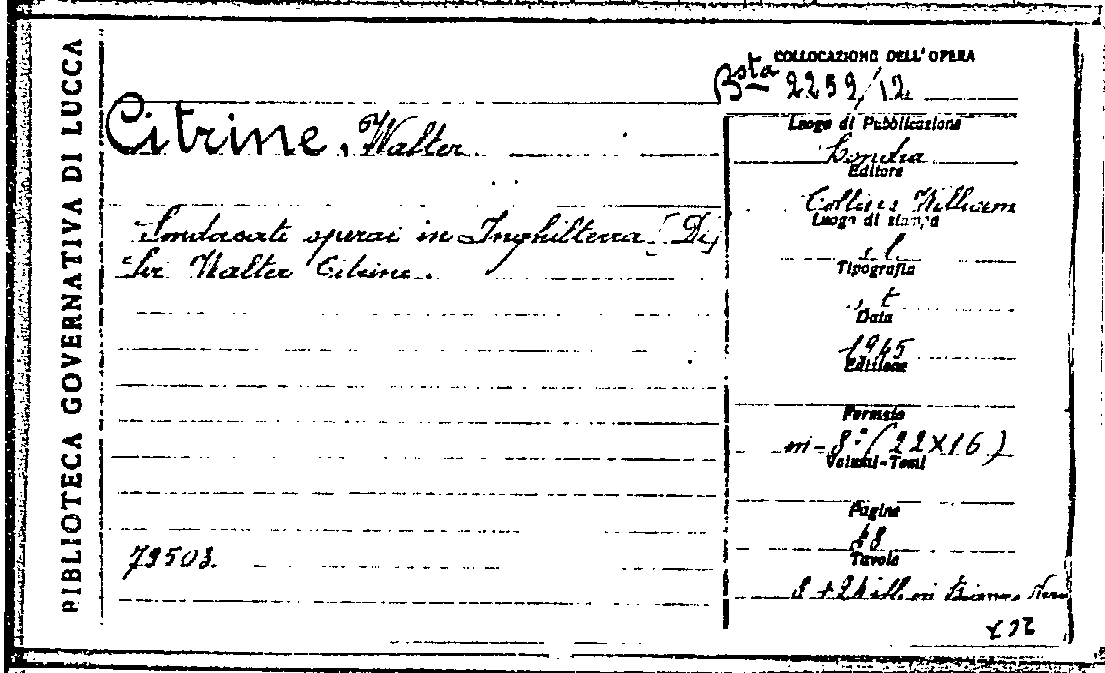 BIBLIOTECA GOVERNATIVA DI LUCCA
COLLOCAZIONE DELL'OPERA
Bsta 2259/12
Citrine, Walter
Sindacati operai in Inghilterra [Di]
Sir Walter Citrine.
73503
Luogo di Pubblicazione
Londra
Editore
Collins William
Luogo di stampa
s. l.
Tipografia
s. t.
Data
1945
Edizione
Formato
in-8° (22X16)
Volumi-Tomi
Pagine
48
Tavole
8 + 24 ill. in Bianco Nero